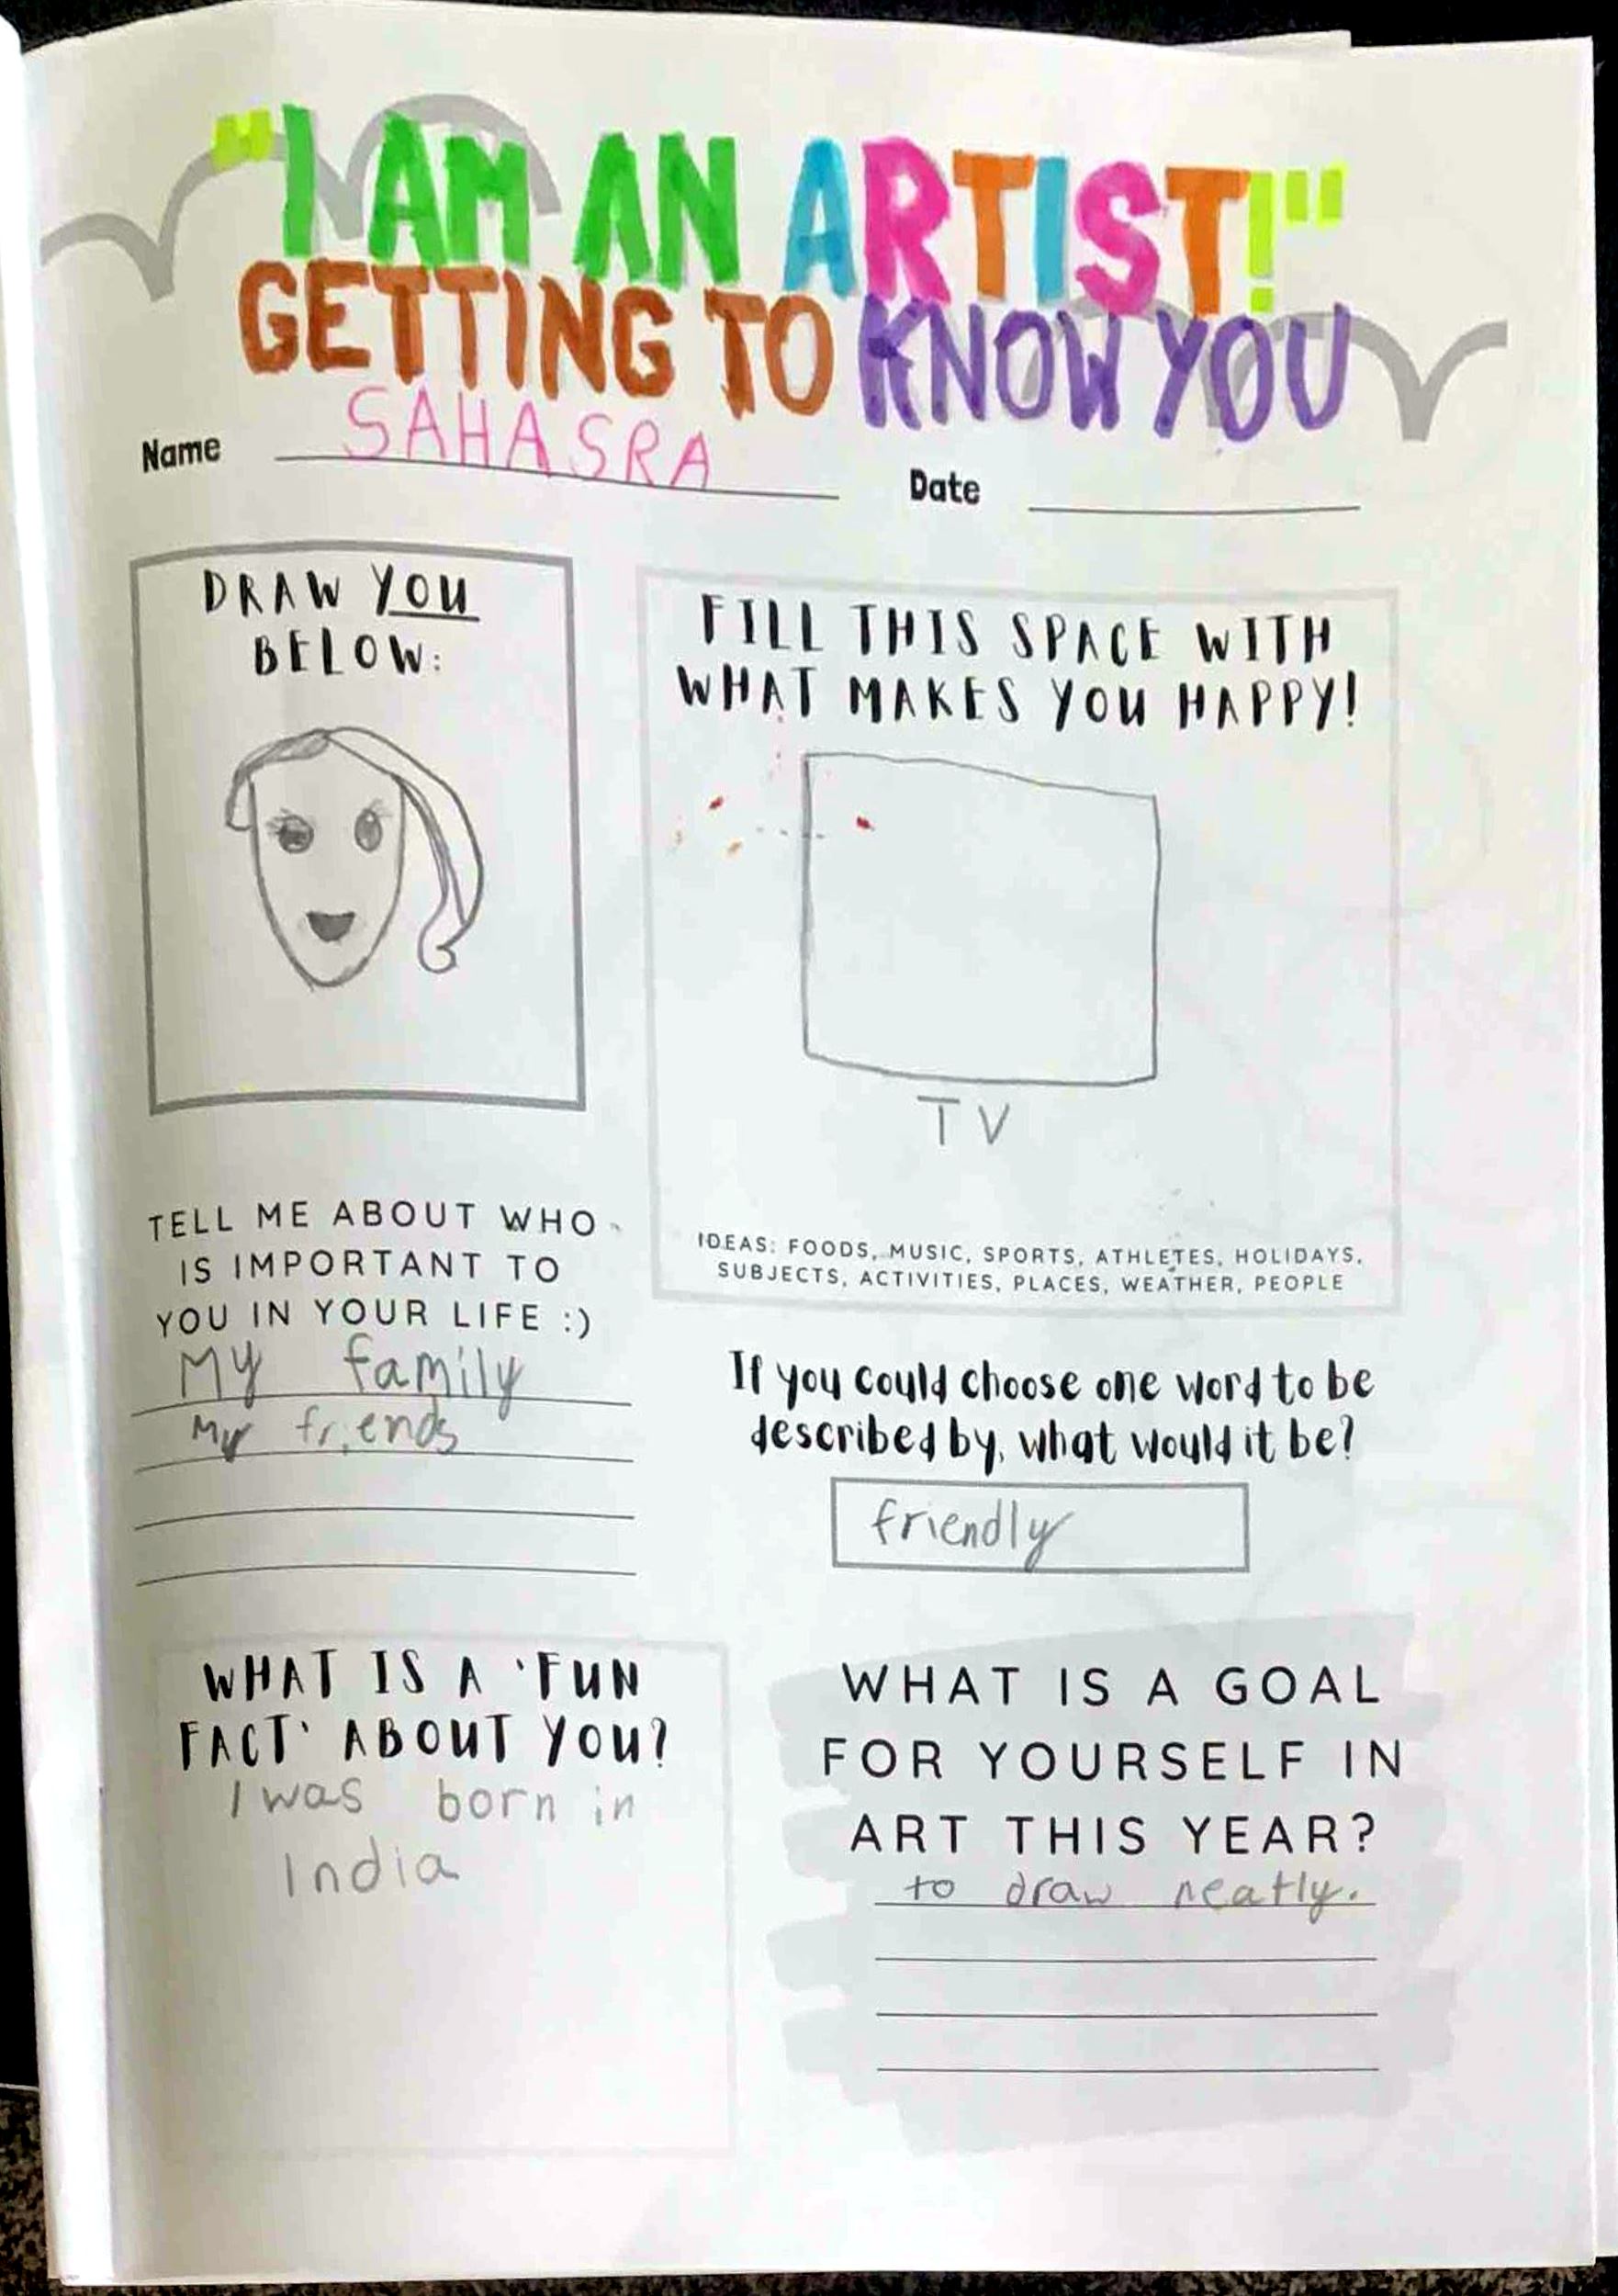 "I AM AN ARTIST!"
GETTING TO KNOW YOU
Name SAHASRA Date
DRAW YOU
BELOW:
FILL THIS SPACE WITH
WHAT MAKES YOU HAPPY!
TV
IDEAS: FOODS, MUSIC, SPORTS, ATHLETES, HOLIDAYS,
SUBJECTS, ACTIVITIES, PLACES, WEATHER, PEOPLE
TELL ME ABOUT WHO
IS IMPORTANT TO
YOU IN YOUR LIFE :)
My family
My friends
If you could choose one word to be
described by, what would it be?
friendly
WHAT IS A 'FUN
FACT' ABOUT YOU?
I was born in
India
WHAT IS A GOAL
FOR YOURSELF IN
ART THIS YEAR?
to draw neatly.